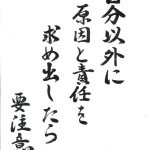 自分以外に
原因と責任を
求め出したら
要注意